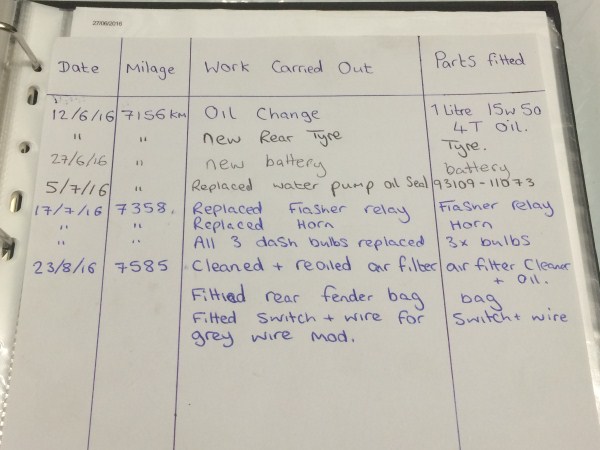 27/06/2016
Date Milage Work Carried Out Parts fitted
12/6/16 7156 KM Oil Change 1 Litre 15w50
4T Oil.
" " new Rear Tyre Tyre.
27/6/16 " new battery battery
5/7/16 " Replaced water pump oil Seal 93109-11073
17/7/16 7358. Replaced Flasher relay Flasher relay
" " Replaced Horn Horn
" " All 3 dash bulbs replaced 3x bulbs
23/8/16 7585 Cleaned + reoiled air filter air filter Cleaner
+ oil.
Fitted rear fender bag bag
Fitted Switch + wire for Switch + wire
grey wire mod.